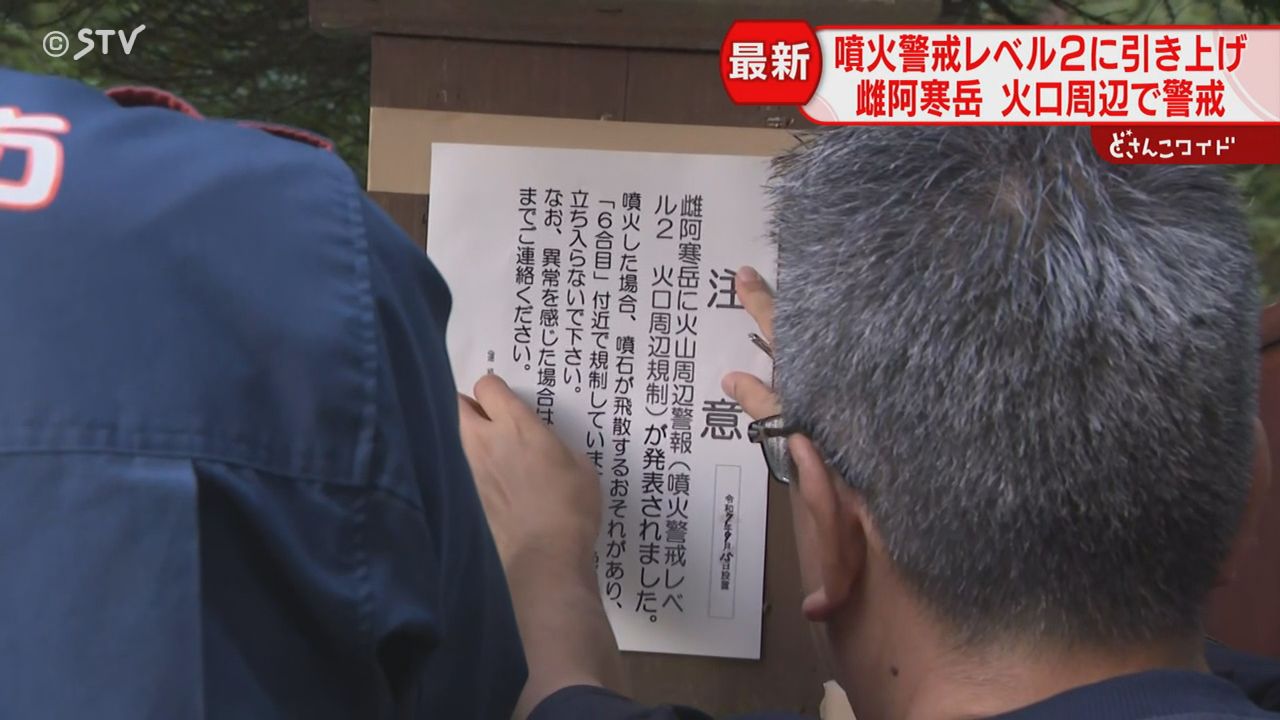 © STV
最新
噴火警戒レベル2に引き上げ
雌阿寒岳 火口周辺で警戒
どさんこワイド
市
注意
令和7年9月15日設置
雌阿寒岳に火山周辺警報（噴火警戒レベ
ル2 火口周辺規制）が発表されました。
噴火した場合、噴石が飛散するおそれがあり、
「6合目」付近で規制していま
立ち入らないで下さい。
なお、異常を感じた場合は
までご連絡ください。